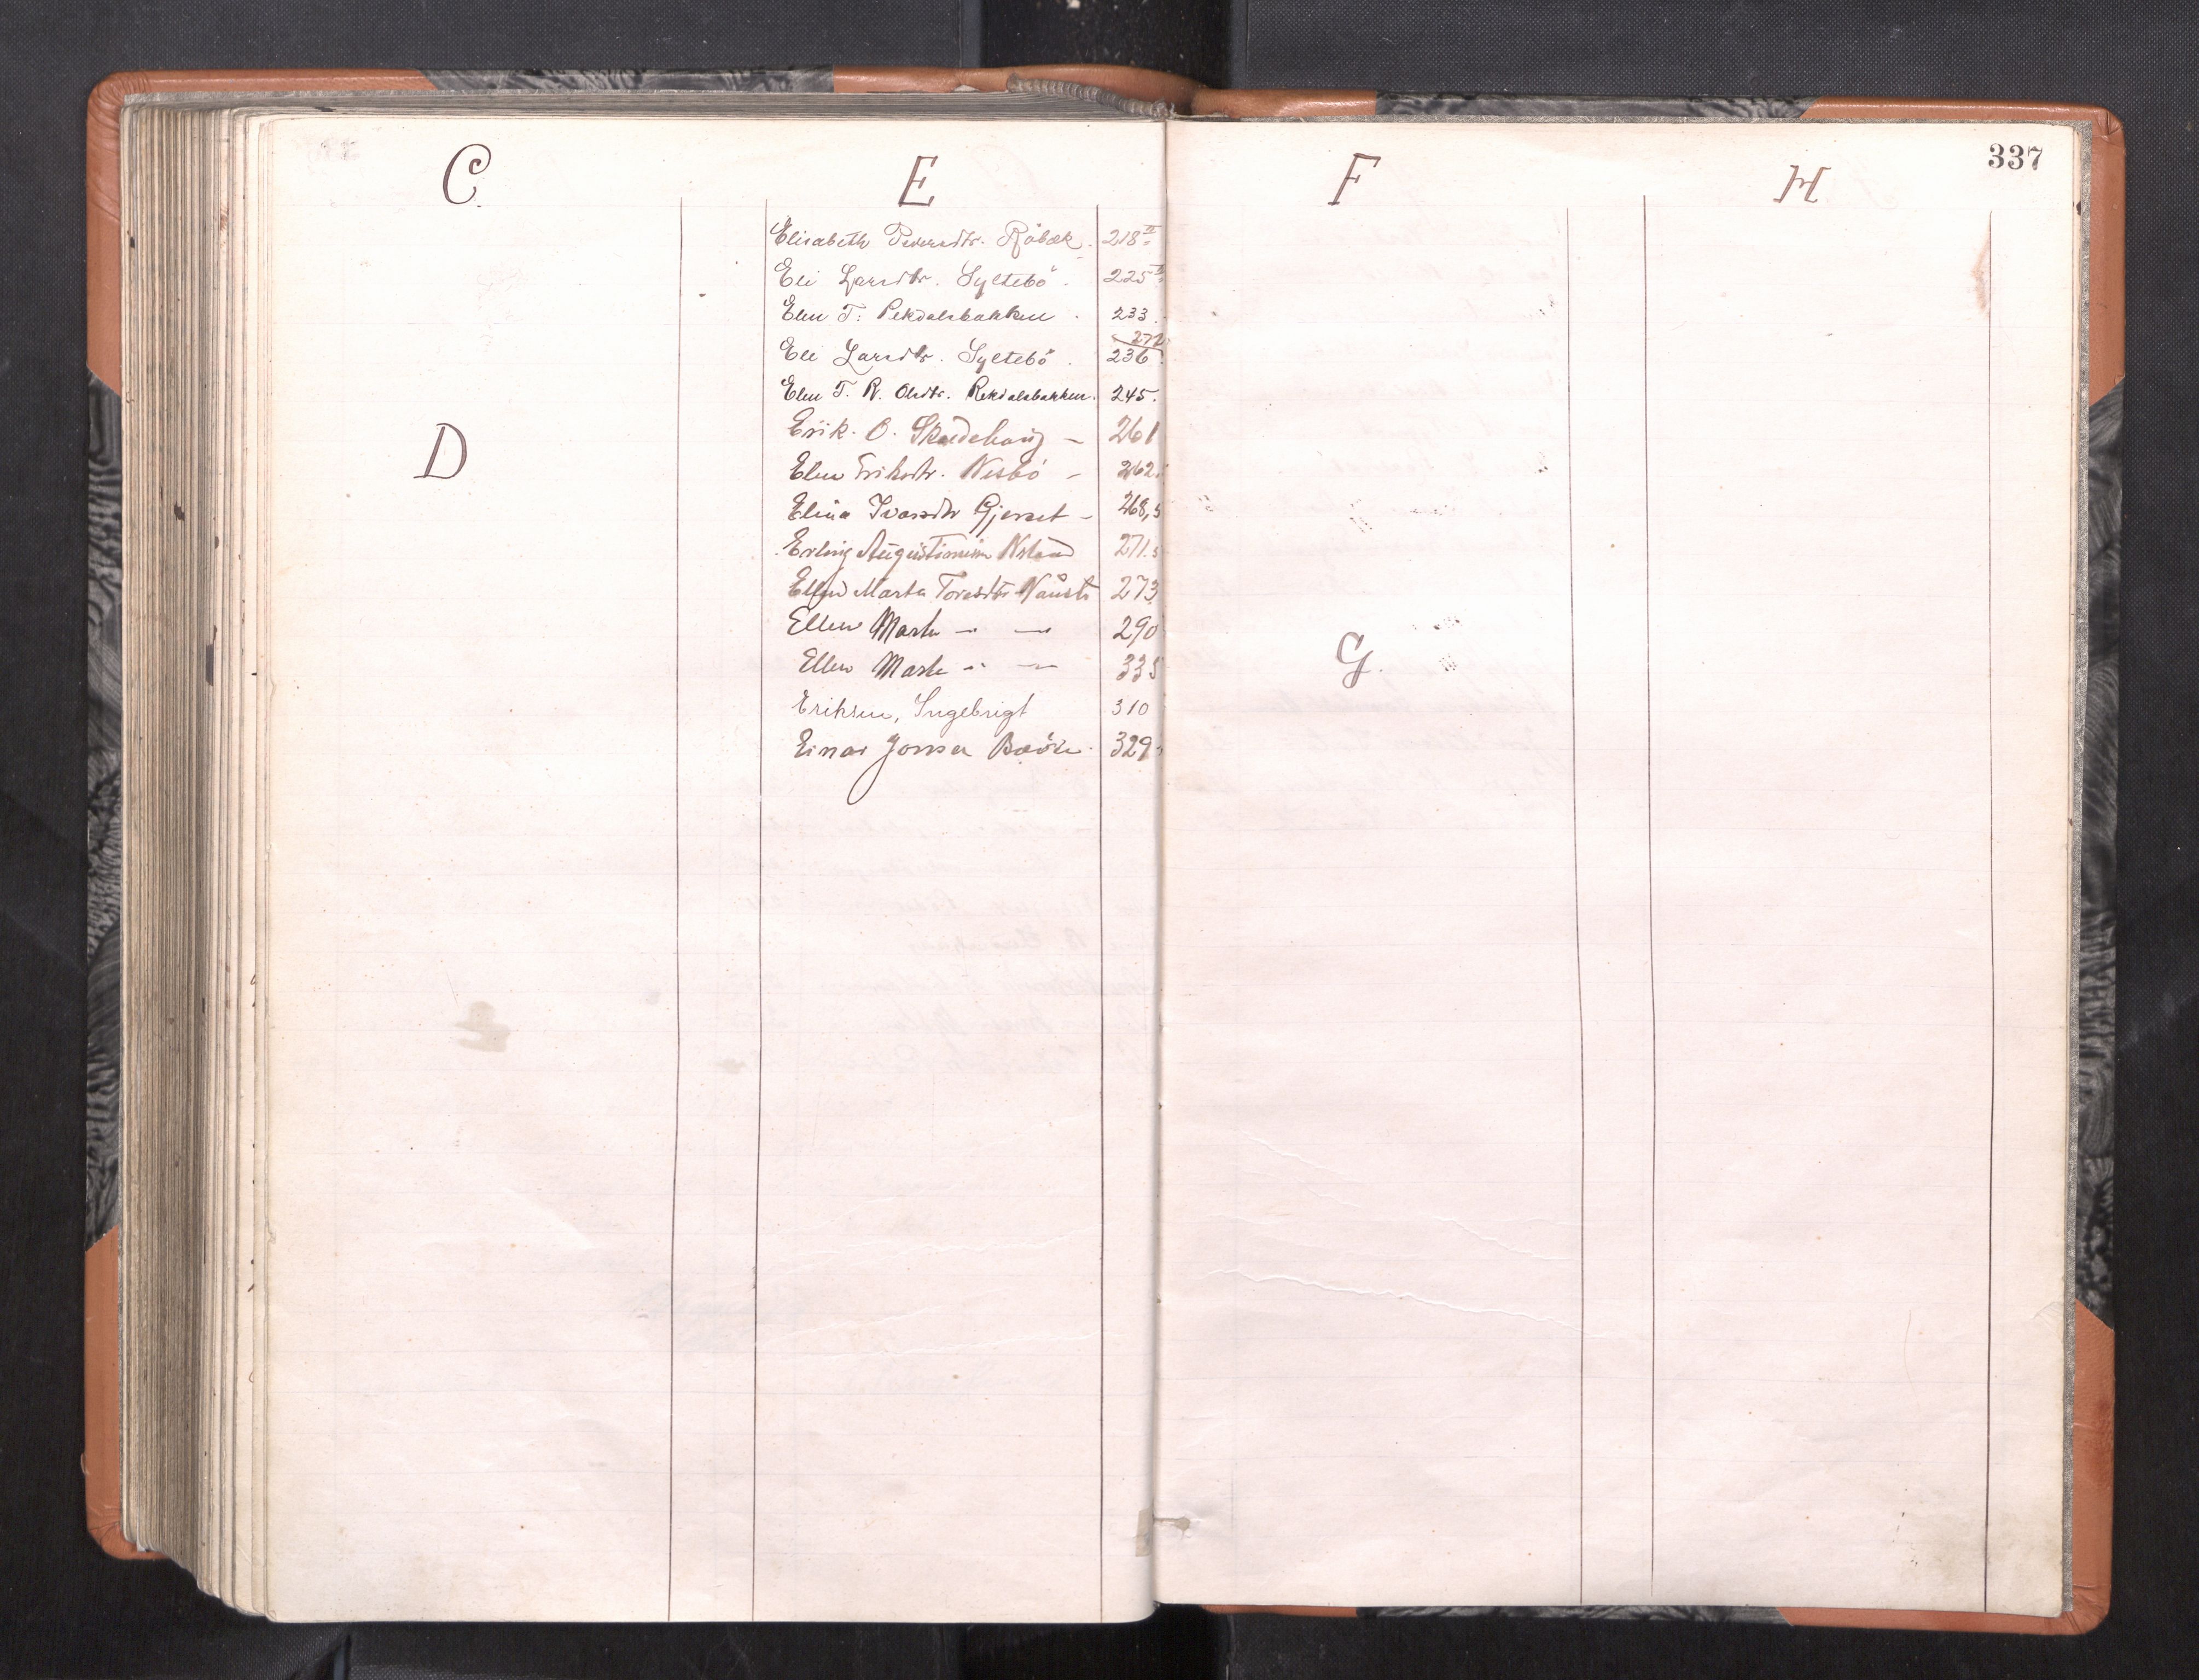 C.
D
E
Elisabeth Pedersdtr. Röbæk. 218 II
Eli Larsdtr. Syltebö. 225 II
Elen T. Rekdalsbakken. 233.
272
Eli Larsdtr. Syltebö. 236.
Elen T. R. Olsdtr. Rekdalsbakken. 245.
Erik. O. Skudehaug – 261
Elen Eriksdtr. Nesbö – 262.
Elina Ivarsdtr Gjerset – 268,5
Erling 271.5
Ellen Marta Toresdtr Nauste 273
Ellen Marta –"– –"– 290
Ellen Marta –"– –"– 335
Eriksen, Ingebrigt 310
Einar Jonsen 329
337
F
G.
H